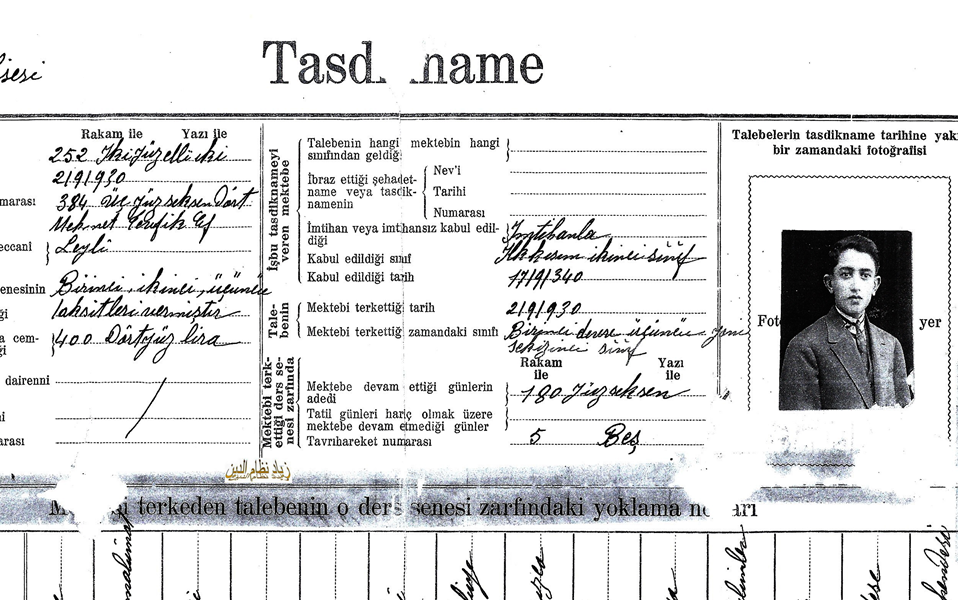 Tasd name
Rakam ile Yazı ile
252 İkiyüzelliiki
21/9/930
marası 384 Üçyüzseksendört
Mehmet Tevfik Ef
eccani Leylî
enesinin Birinci, ikinci, üçüncü
taksitleri vermiştir
a cem- 400 Dörtyüz lira
dairenni
arası
İşbu tasdiknameyi veren mektebe
Talebenin hangi mektebin hangi
sınıfından geldiği
İbraz ettiği şehadet-
name veya tasdik-
namenin
Nev'i
Tarihi
Numarası
İmtihan veya imtihansız kabul edil-
diği
İmtihanla
Kabul edildiği sınıf ikinci sınıf
Kabul edildiği tarih
Tale-
benin
Mektebi terkettiği tarih 21/9/930
Mektebi terkettiği zamandaki sınıfı Birinci devre üçüncü yeni
sekizinci sınıf
Mektebi terk-
ettiği ders se-
nesi zarfında
Rakam Yazı
ile ile
Mektebe devam ettiği günlerin
adedi
180 Yüzseksen
Tatil günleri hariç olmak üzere
mektebe devam etmediği günler
Tavrıhareket numarası 5 Beş
Talebelerin tasdikname tarihine yakı
bir zamandaki fotoğrafisi
Fot yer
زياد نظام الدين
M i terkeden talebenin o ders senesi zarfındaki yoklama n arı